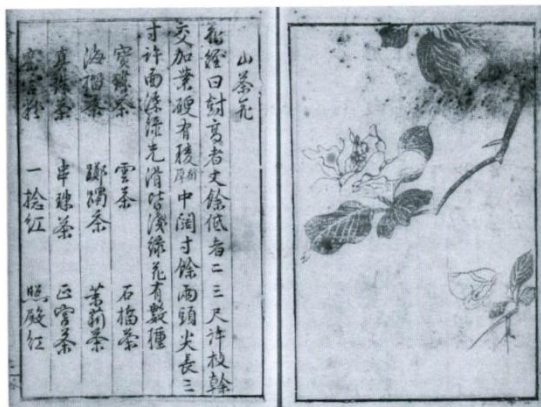 山茶花
花經曰樹高者丈餘低者二三尺許枝幹
交加葉硬有稜稍厚中闊寸餘兩頭尖長三
寸許面深綠光滑背淺綠花有數種
寶珠茶 雲茶 石榴茶
海榴茶 躑躅茶 茉莉茶
真珠茶 串珠茶 正宮茶
賽宮粉 一捻紅 照殿紅